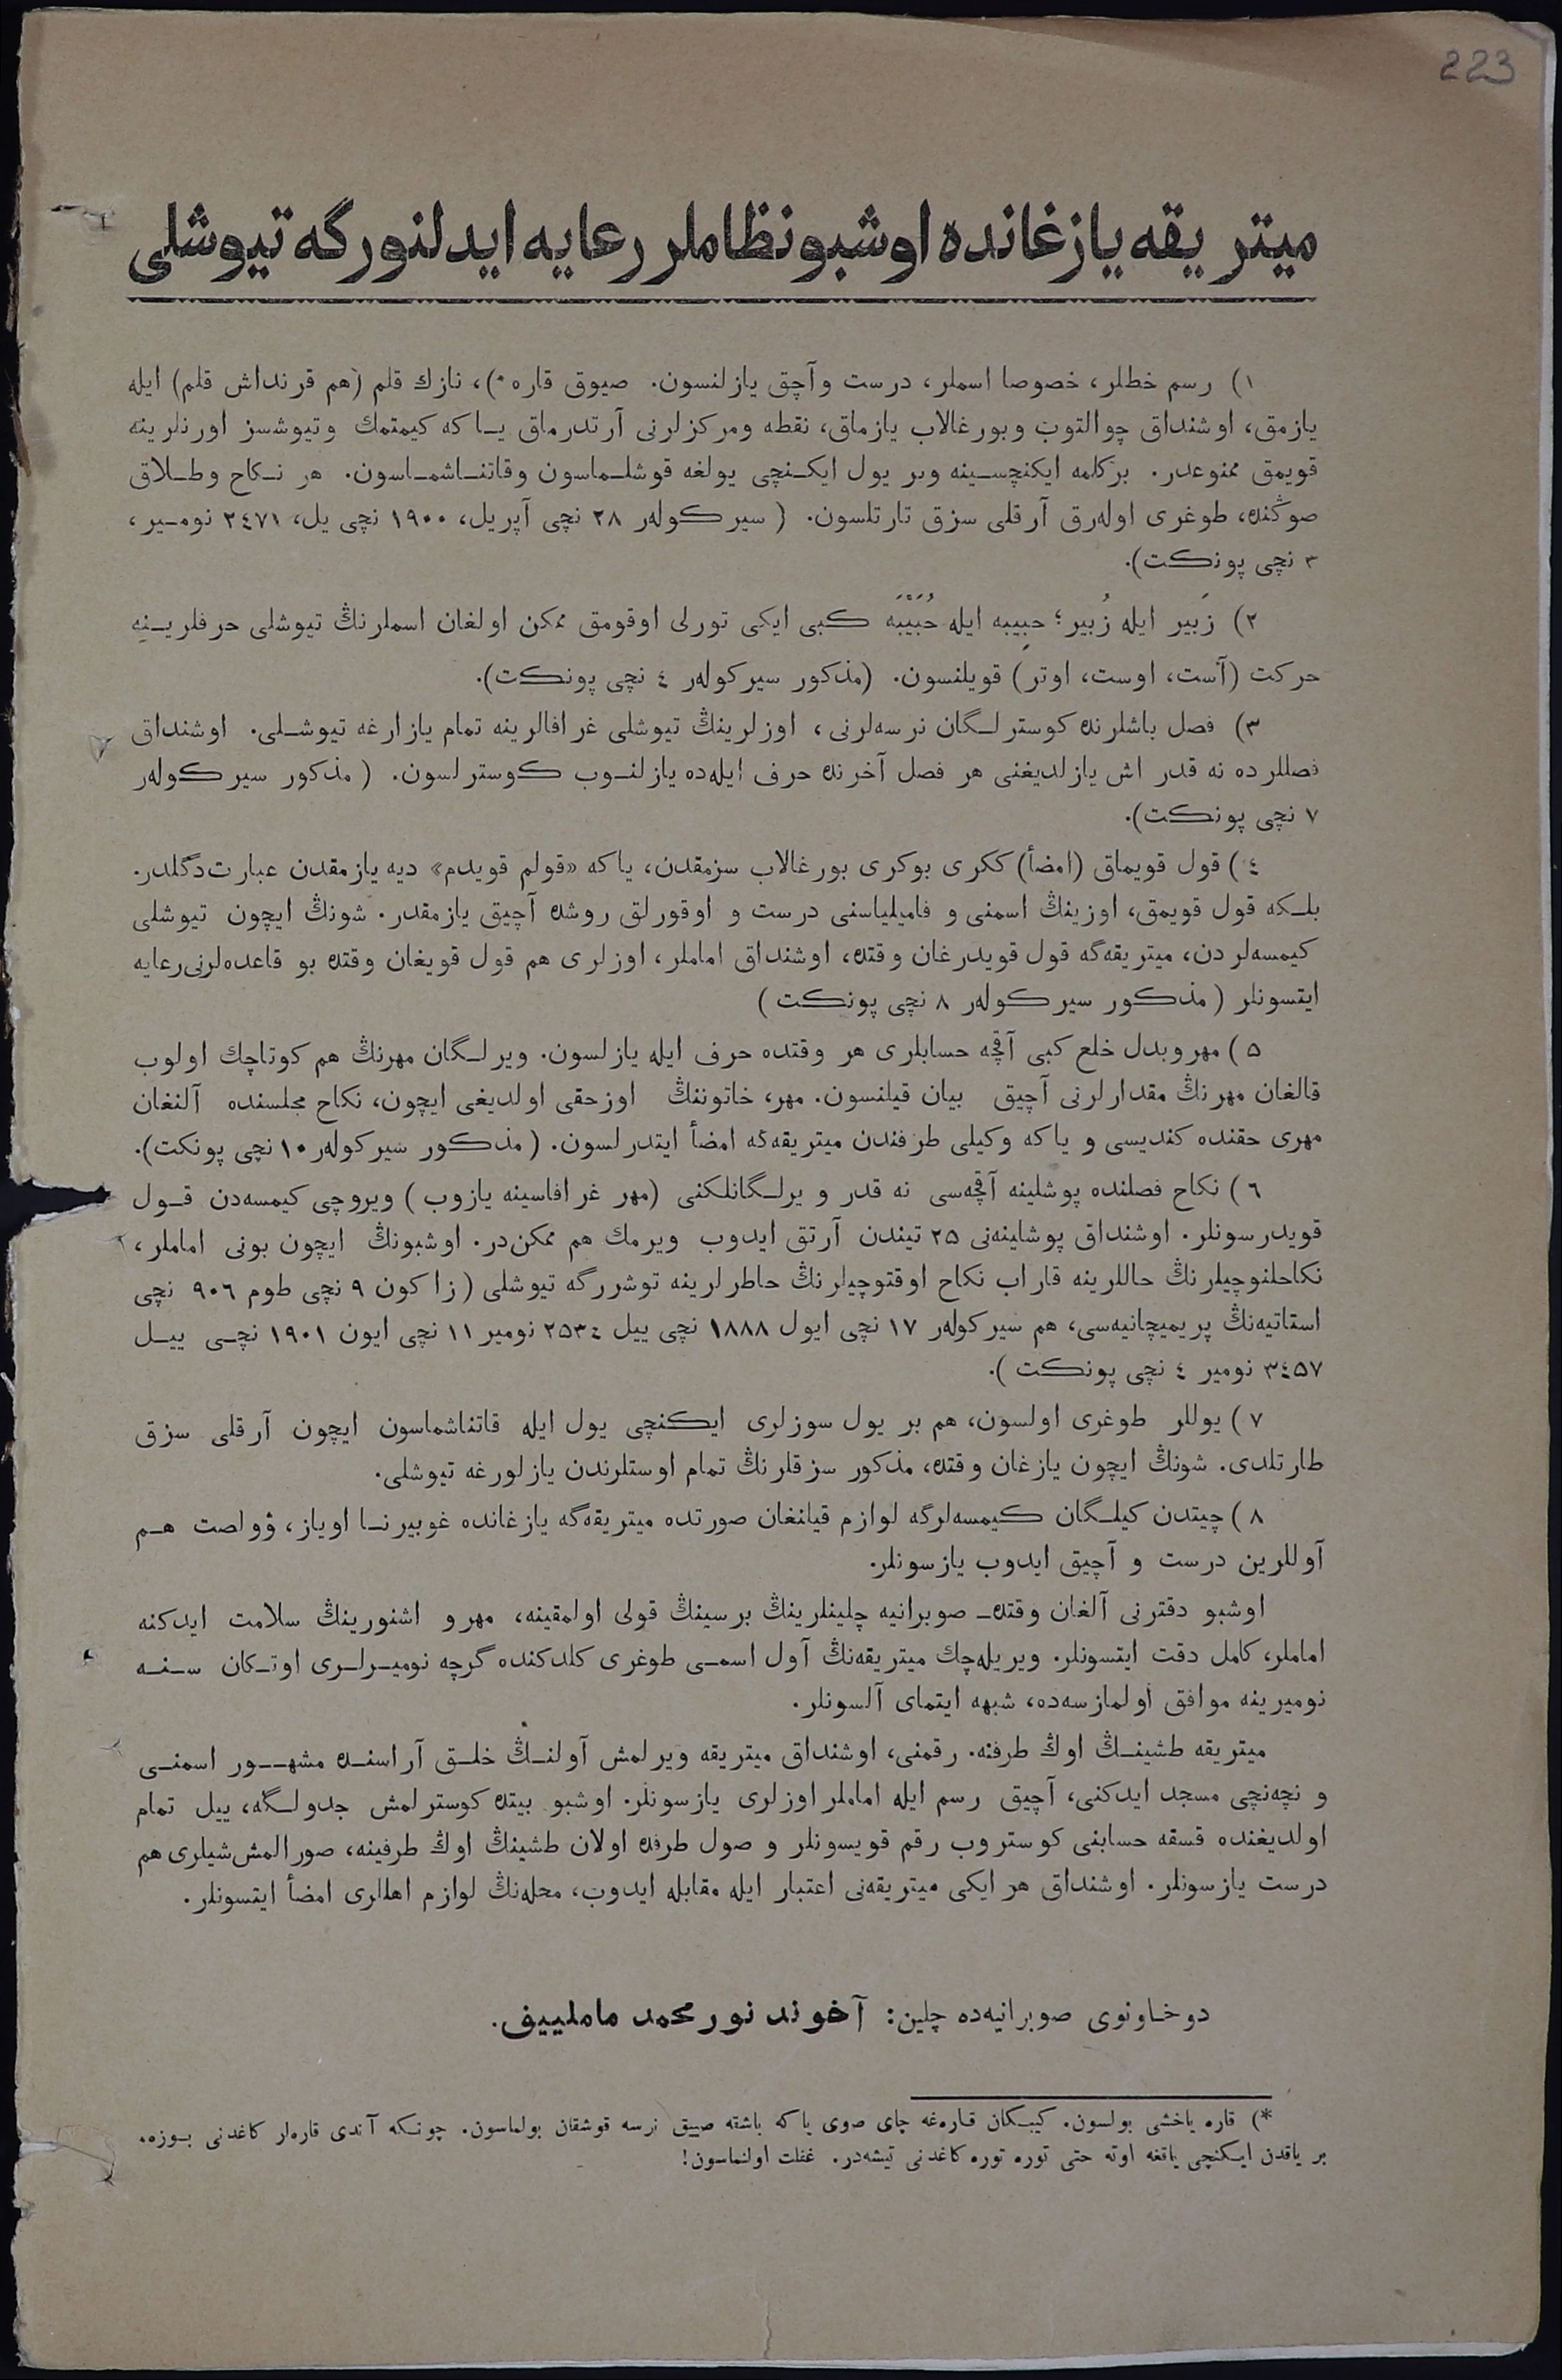 223
میتریقه یازغانده اوشبو نظاملر رعایه ایدلنورگه تیوشلی
۱) رسم خطلر، خصوصا اسملر، درست وآچق یازلنسون. صیوق قاره *)، نازك قلم (هم قرنداش قلم) ایله
یازمق، اوشنداق چوالتوب وبورغالاب یازماق، نقطه ومرکزلرنی آرتدرماق یـاکه کیمتمك وتیوشسز اورنلرینه
قویمق ممنوعدر. برکلمه ایکنچسـینه وبر یول ایکـنچی یولغه قوشلـماسون وقاتنـاشمـاسون. هر نـکاح وطـلاق
صوڭنده، طوغری اوله‌رق آرقلی سزق تارتلسون. (سیرکوله‌ر ۲۸ نچی آپریل، ۱۹۰۰ نچی یل، ۲٤۷۱ نومـیر،
۳ نچی پونکت).
۲) زَبیر ایله زُبیر؛ حبِیبه ایله حُبَیْبَه کبی ایکی تورلی اوقومق ممکن اولغان اسملرنڭ تیوشلی حرفلریـنه
حرکت (آست، اوست، اوتر) قویلنسون. (مذکور سیرکوله‌ر ٤ نچی پونکت).
۳) فصل باشلرنده کوسترلـگان نرسه‌لرنی، اوزلرینڭ تیوشلی غرافالرینه تمام یازارغه تیوشـلی. اوشنداق
فصللرده نه قدر اش یازلدیغنی هر فصل آخرنده حرف ایله‌ده یازلنـوب کوسترلسون. (مذکور سیرکوله‌ر
۷ نچی پونکت).
٤) قول قویماق (امضأ) ککری بوکری بورغالاب سزمقدن، یاکه «قولم قویدم» دیه یازمقدن عبارت‌دگلدر.
بلـکه قول قویمق، اوزینڭ اسمنی و فامیلیاسنی درست و اوقورلق روشده آچیق یازمقدر. شونڭ ایچون تیوشلی
کیمسه‌لردن، میتریقه‌گه قول قویدرغان وقتده، اوشنداق اماملر، اوزلری هم قول قویغان وقتده بو قاعده‌لرنی‌رعایه
ایتسونلر (مذکور سیرکوله‌ر ۸ نچی پونکت)
۵) مهروبدل خلع کبی آقچه حسابلری هر وقتده حرف ایله یازلسون. ویرلـگان مهرنڭ هم کوتاچك اولوب
قالغان مهرنڭ مقدارلرنی آچیق بیان قیلنسون. مهر، خاتوننڭ اوزحقی اولدیغی ایچون، نکاح مجلسنده آلنغان
مهری حقنده کندیسی و یاکه وکیلی طرفندن میتریقه‌گه امضأ ایتدرلسون. (مذکور سیرکوله‌ر ۱۰ نچی پونکت).
٦) نکاح فصلنده پوشلینه آقچه‌سی نه قدر ویرلـگانلکنی (مهر غرافاسینه یازوب) ویروچی کیمسه‌دن قـول
قویدرسونلر. اوشنداق پوشلینه‌نی ۲۵ تیندن آرتق ایدوب ویرمك هم ممکن‌در. اوشبونڭ ایچون بونی اماملر،
نکاحلنوچیلرنڭ حاللرینه قاراب نکاح اوقتوچیلرنڭ خاطرلرینه توشررگه تیوشلی (زاکون ۹ نچی طوم ۹۰٦ نچی
استاتیه‌نڭ پریمیچانیه‌سی، هم سیرکوله‌ر ۱۷ نچی ایول ۱۸۸۸ نچی ییل ۲۵۳٤ نومیر ۱۱ نچی ایون ۱۹۰۱ نچـی ییـل
۳٤۵۷ نومیر ٤ نچی پونکت).
۷) یوللر طوغری اولسون، هم بر یول سوزلری ایکنچی یول ایله قاتناشماسون ایچون آرقلی سزق
طارتلدی. شونڭ ایچون یازغان وقتده، مذکور سزقلرنڭ تمام اوستلرندن یازلورغه تیوشلی.
۸) چیتدن کیلـگان کیمسه‌لرگه لوازم قیلنغان صورتده میتریقه‌گه یازغانده غوبیرنـا اویاز، ؤولصت هـم
آوللرین درست و آچیق ایدوب یازسونلر.
اوشبو دفترنی آلغان وقتده‌ـ صوبرانیه چلینلرینڭ برسینڭ قولی اولمقینه، مهرو اشنورینڭ سلامت ایدکنه
اماملر، کامل دقت ایتسونلر. ویریله‌چك میتریقه‌نڭ آول اسمـی طوغری کلدکنده گرچه نومیـرلـری اوتـکان سـنـه
نومیرینه موافق اولمازسه‌ده، شبهه ایتمای آلسونلر.
میتریقه طشینـڭ اوڭ طرفنه. رقمنی، اوشنداق میتریقه ویرلمش آولنـڭ خلـق آراسنـده مشهـور اسمنـی
و نچه‌نچی مسجد ایدکنی، آچیق رسم ایله اماملر اوزلری یازسونلر. اوشبو بیتده کوسترلمش جدولـگه، ییل تمام
اولدیغنده قسقه حسابنی کوستروب رقم قویسونلر و صول طرفده اولان طشینڭ اوڭ طرفینه، صورالمش‌شیلری هم
درست یازسونلر. اوشنداق هر ایکی میتریقه‌نی اعتبار ایله مقابله ایدوب، محله‌نڭ لوازم اهللری امضأ ایتسونلر.
دوخاونوی صوبرانیه‌ده چلین: آخوند نورمحمد ماملییف.
*) قاره یاخشی بولسون. کیبـکان قاره‌غه چای صوی یاکه باشقه صییق نرسه قوشقان بولماسون. چونـکه آندی قاره‌لر کاغدنی بـوزه،
بر یاقدن ایـکنچی یاقغه اوته حتی توره توره کاغدنی تیشه‌در. غفلت اولنماسون!